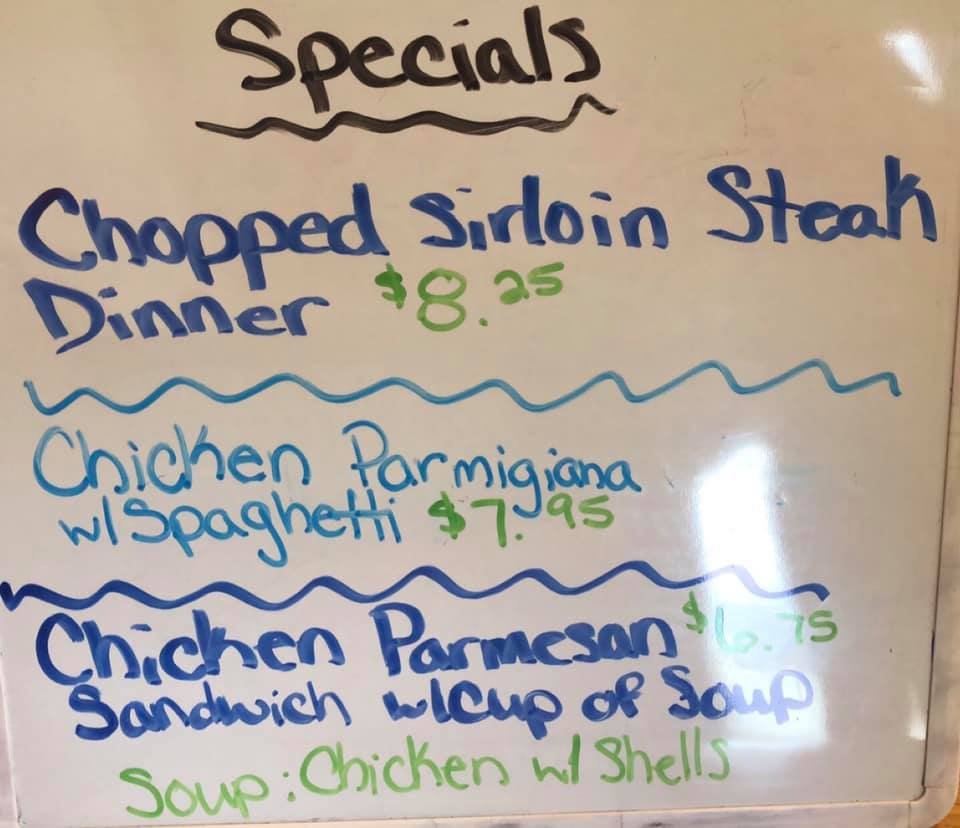 Specials
Chopped Sirloin Steak
Dinner $8.25
Chicken Parmigiana
w/Spaghetti $7.95
Chicken Parmesan $6.75
Sandwich w/Cup of Soup
Soup: Chicken w/ Shells